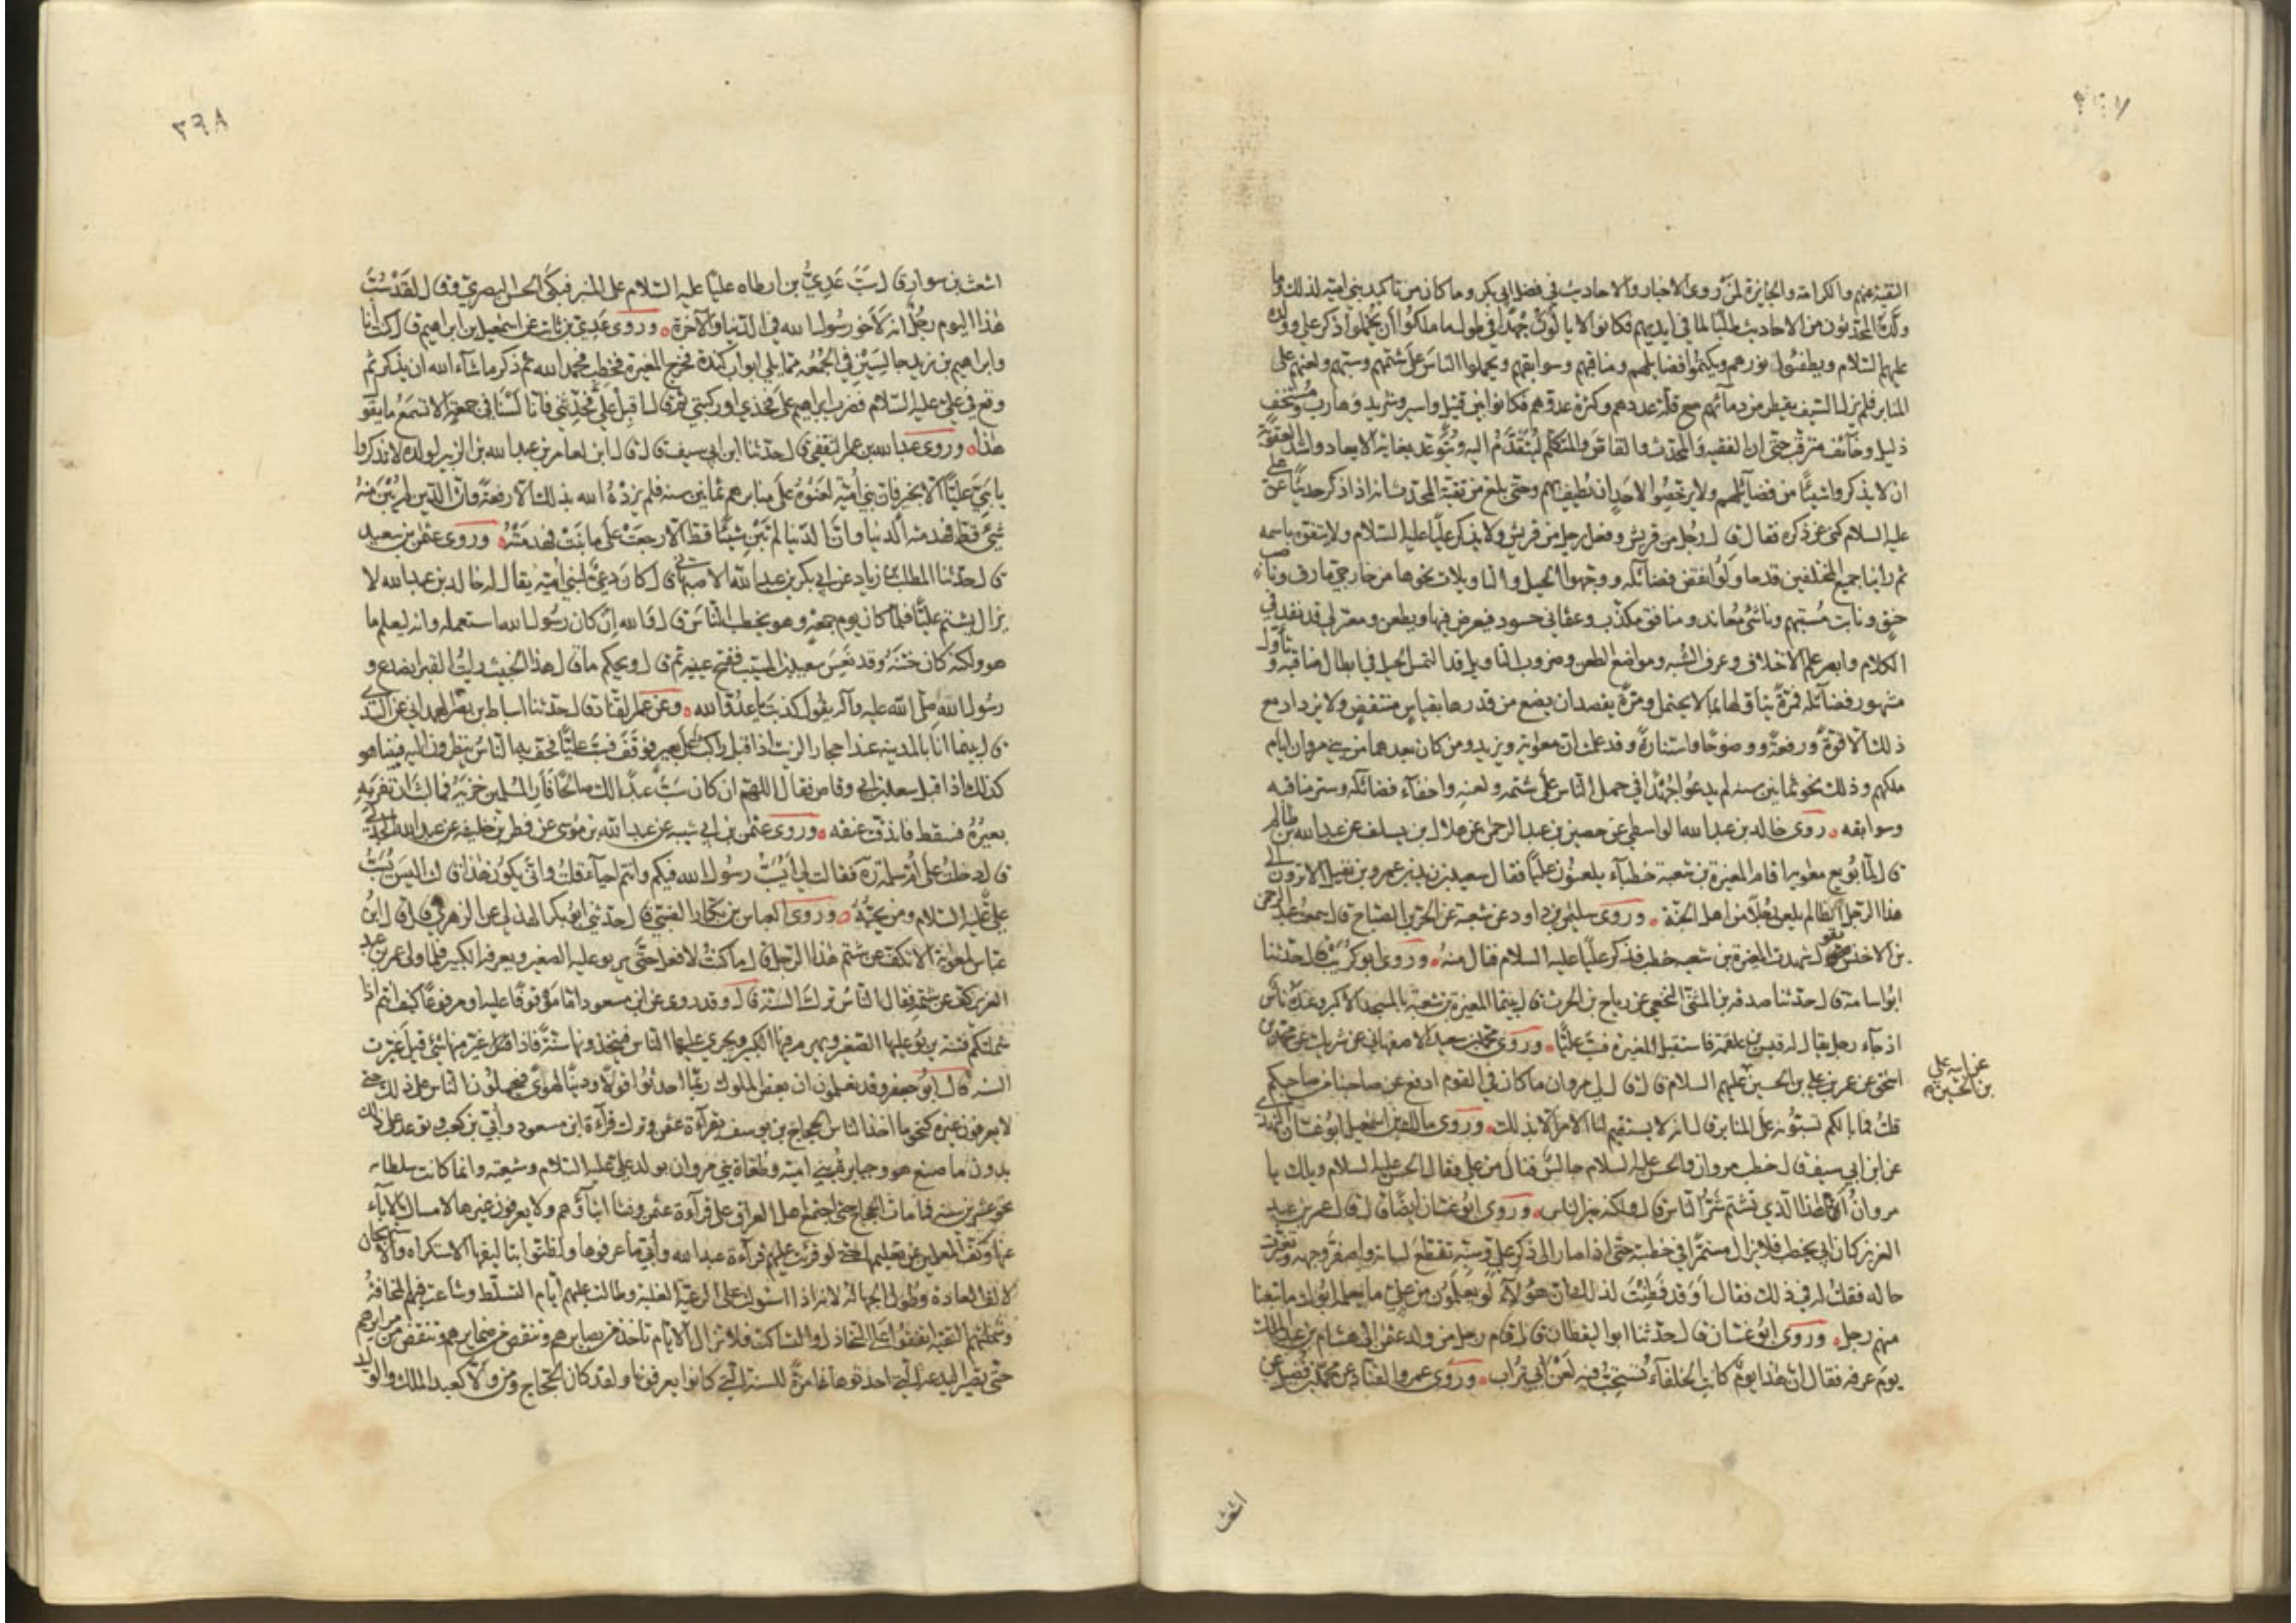 ٣٩٧
التقية عنهم والكرامة والجايزة لمن روى الاخبار والاحاديث في فضل ابي بكر وما كان من تاكيد بني امية لذلك وما
ولده المحدثون من الاحاديث طلبا لما في ايديهم فكانوا لا يالون جهدا في طول ما ملكوا ان يخملوا ذكر علي وولده
عليهم السلام ويطفئوا نورهم ويكتموا فضايلهم ومناقبهم وسوابقهم ويحملوا الناس على شتمهم وسبهم ولعنهم على
المنابر فلم يزل السيف يقطر من دمائهم مع قلة عددهم وكثرة عدوهم فكانوا بين قتيل واسير وشريد وهارب ومستخف
ذليل وخائف مترقب حتى ان الفقيه والمحدث والقاص والمتكلم ليتقدم اليه ويتوعد بغاية الايعاد واشد العقوبة
ان لا يذكروا شيئا من فضائلهم ولا يرخصوا لاحد ان يطيف بهم وحتى بلغ من تقية المحدث انه اذا ذكر حديثا عن علي
عليه السلام كنى عن ذكره فقال قال رجل من قريش وفعل رجل من قريش ولا يذكر عليا عليه السلام ولا يتفوه باسمه
ثم راينا جميع المختلفين قد حاولوا نقض فضائله ووجهوا الحيل والتاويلات نحوها من خارجي مارق وناصب
حنق ونابت مستبهم وناشئ معاند ومنافق مكذب وعثماني حسود يعرض فيها ويطعن ومعتزلي قد نفد في
الكلام وابصر علم الاختلاف وعرف الشبه ومواضع الطعن وضروب التاويل قد التمس الحيل في ابطال مناقبه وتأول
مشهور فضائله فمرة يتاولها بما لا يحتمل ومرة يقصد ان يضع من قدرها بقياس منتقض ولا يزداد مع
ذلك الا قوة ورفعة ووضوحا واستنارة وقد علمت ان معوية ويزيد ومن كان بعدهما من بني مروان ايام
ملكهم وذلك نحو ثمانين سنه لم يدعوا جهدا في حمل الناس على شتمه ولعنه واخفآء فضائله وستر مناقبه
وسوابقه روى خالد بن عبد الله الواسطي عن حصين بن عبد الرحمن عن هلال بن يساف عن عبد الله بن ظالم
قال لما بويع معوية اقام المغيرة بن شعبة خطبآء يلعنون عليا فقال سعيد بن زيد بن عمرو بن نفيل الا ترون الى
هذا الرجل الظالم يلعن رجلا من اهل الجنة وروى سليمن بن داود عن شعبة عن الحر بن الصياح قال سمعت عبد الرحمن
بن الاخنس يقول شهدت المغيرة بن شعبه خطب فذكر عليا عليه السلام فنال منه وروى ابو كريب قال حدثنا
ابو اسامة قال حدثنا صدقه بن المثنى النخعي عن رياح بن الحرث قال بينما المغيرة بن شعبة بالمسجد الاكبر وعنده ناس
اذ جآء رجل يقال له قيس بن علقمة فاستقبل المغيرة فسب عليا وروى محمد بن سعيد الاصفهاني عن شريك عن محمد بن
اسحق عن عمر بن علي بن الحسين عليهم السلام قال قال لي مروان ما كان في القوم ادفع عن صاحبنا من صاحبكم
عن ابيه علي
بن الحسين
قلت فما بالكم تسبونه على المنابر قال انه لا يستقيم لنا الامر الا بذلك وروى مالك بن اسمعيل ابو غسان النهدي
عن ابن ابي سيف قال خطب مروان والحسن عليه السلام جالس فنال من علي فقال الحسن عليه السلام ويلك يا
مروان اهذا الذي تشتم شر الناس قال لا ولكنه خير الناس وروى ابو غسان ايضا قال قال عمر بن عبد
العزيز كان ابي يخطب فلا يزال مستمرا في خطبته حتى اذا صار الى ذكر علي وسبه تقطع لسانه واصفر وجهه وتغيرت
حاله فقلت له في ذلك فقال او قد فطنت لذلك ان هؤلآء لو يعلمون من علي ما يعلمه ابوك ما تبعنا
منهم رجل وروى ابو غسان قال حدثنا ابو اليقظان قال قام رجل من ولد عثمن الى هشام بن عبد الملك
يوم عرفه فقال ان هذا يوم كانت الخلفآء تستحب فيه لعن ابي تراب وروى عمرو القناد عن محمد بن فضيل عن
اشعث
٣٩٨
اشعث بن سوار قال سب عدي بن ارطاه عليا عليه السلام على المنبر فبكى الحسن البصري وقال لقد سب
هذا اليوم رجل انه لاخو رسول الله في الدنيا والآخرة وروى عدي بن ثابت عن اسمعيل بن ابراهيم قال كنت انا
وابراهيم بن يزيد جالسين في الجمعه مما يلي ابواب كندة فخرج المغيرة فخطب فحمد الله ثم ذكر ما شآء الله ان يذكر ثم
وقع في علي عليه السلام فضرب ابراهيم على فخذي او ركبتي ثم قال اقبل علي فحدثني فانا لسنا في جمعة الا تسمع ما يقول
هذا وروى عبد الله بن عمر الثقفي قال حدثنا ابن ابي سيف قال قال ابن لعامر بن عبد الله بن الزبير لولده لا تذكروا
يا بني عليا الا بخير فان بني امية لعنوه على منابرهم ثمانين سنه فلم يزده الله بذلك الا رفعة وان الدين لم يبن
شيئ قط فهدمته الدنيا وان الدنيا لم تبن شيئا قط الا رجعت على ما بنت فهدمته وروى عثمن بن سعيد
قال حدثنا المطلب بن زياد عن ابي بكر بن عبد الله الاصبهاني قال كان دعي لبني امية يقال له خالد بن عبد الله لا
يزال يشتم عليا فلما كان يوم جمعة وهو يخطب الناس قال والله ان كان رسول الله استعمله وانه ليعلم ما
هو ولكنه كان ختنه وقد نعس سعيد بن المسيب ففتح عينيه ثم قال ويحكم ما قال هذا الخبيث رايت القبر انصدع و
رسول الله صلى الله عليه وآله يقول كذبت يا عدو الله وعن عمر القناد قال حدثنا اسباط بن نصر الهمداني عن السدي
قال بينما انا بالمدينه عند احجار الزيت اذ اقبل راكب على بعير فوقف فسب عليا فخف به الناس ينظرون اليه فبينا هو
كذلك اذ اقبل سعد بن ابي وقاص فقال اللهم ان كان سب عبدا لك صالحا فأر المسلمين خزيه فما لبث ان نفر به
بعيره فسقط فاندقت عنقه وروى عثمن بن ابي شيبه عن عبد الله بن موسى عن فطر بن خليفه عن عبد الله الجدلي
قال دخلت على ام سلمة ره فقالت لي ايسب رسول الله فيكم وانتم احيآء قلت وانى يكون هذا قالت اليس يسب
علي عليه السلام ومن يحبه وروى العباس بن بكار الضبي قال حدثني ابو بكر الهذلي عن الزهري قال قال ابن
عباس لمعوية الا تكف عن شتم هذا الرجل قال ما كنت لافعل حتى يربو عليه الصغير ويهرم فيه الكبير فلما ولي عمر بن عبد
العزيز كف عن شتمه فقال الناس ترك السنة قال وقد روي عن ابن مسعود اما موقوفا عليه او مرفوعا كيف انتم اذا
شملتكم فتنة يربو عليها الصغير ويهرم فيها الكبير ويجري عليها الناس فيتخذونها سنة فاذا غير منها شئ قيل غيرت
السنة قال ابو جعفر وقد تعلمون ان بعض الملوك ربما احدثوا قولا او دينا لهوى فيحملون الناس على ذلك حتى
لا يعرفون غيره كنحو ما اخذ الناس الحجاج بن يوسف بقرآءة عثمن وترك قرآءة ابن مسعود وأبي بن كعب وتوعد على ذلك
بدون ما صنع هو وجبابرة بني امية وطغاة بني مروان بولد علي عليه السلام وشيعته وانما كانت سلطانه
نحو عشرين سنه فما مات الحجاج حتى اجتمع اهل العراق على قرآءة عثمن ونشأ ابنآؤهم ولا يعرفون غيرها لامساك الآبآء
عنها وكف المعلمين عن تعليمها حتى لو قرئت عليهم قرآءة عبد الله وأبي ما عرفوها ولظنوا بتاليفها الاستكراه والاستهجان
لالف العادة وطول الجهالة لانه اذا استولت على الرعية الغلبة وطالت عليهم ايام التسلط وشاعت فيهم المخافة
وشملتهم التقية اتفقوا على التخاذل والتساكت فلا تزال الايام تاخذ من بصايرهم وتنقص من ضمايرهم وتنقض من مرايرهم
حتى تصير البدعة التي احدثوها غامرة للسنة التي كانوا يعرفونها ولقد كان الحجاج ومن ولاه كعبد الملك والوليد